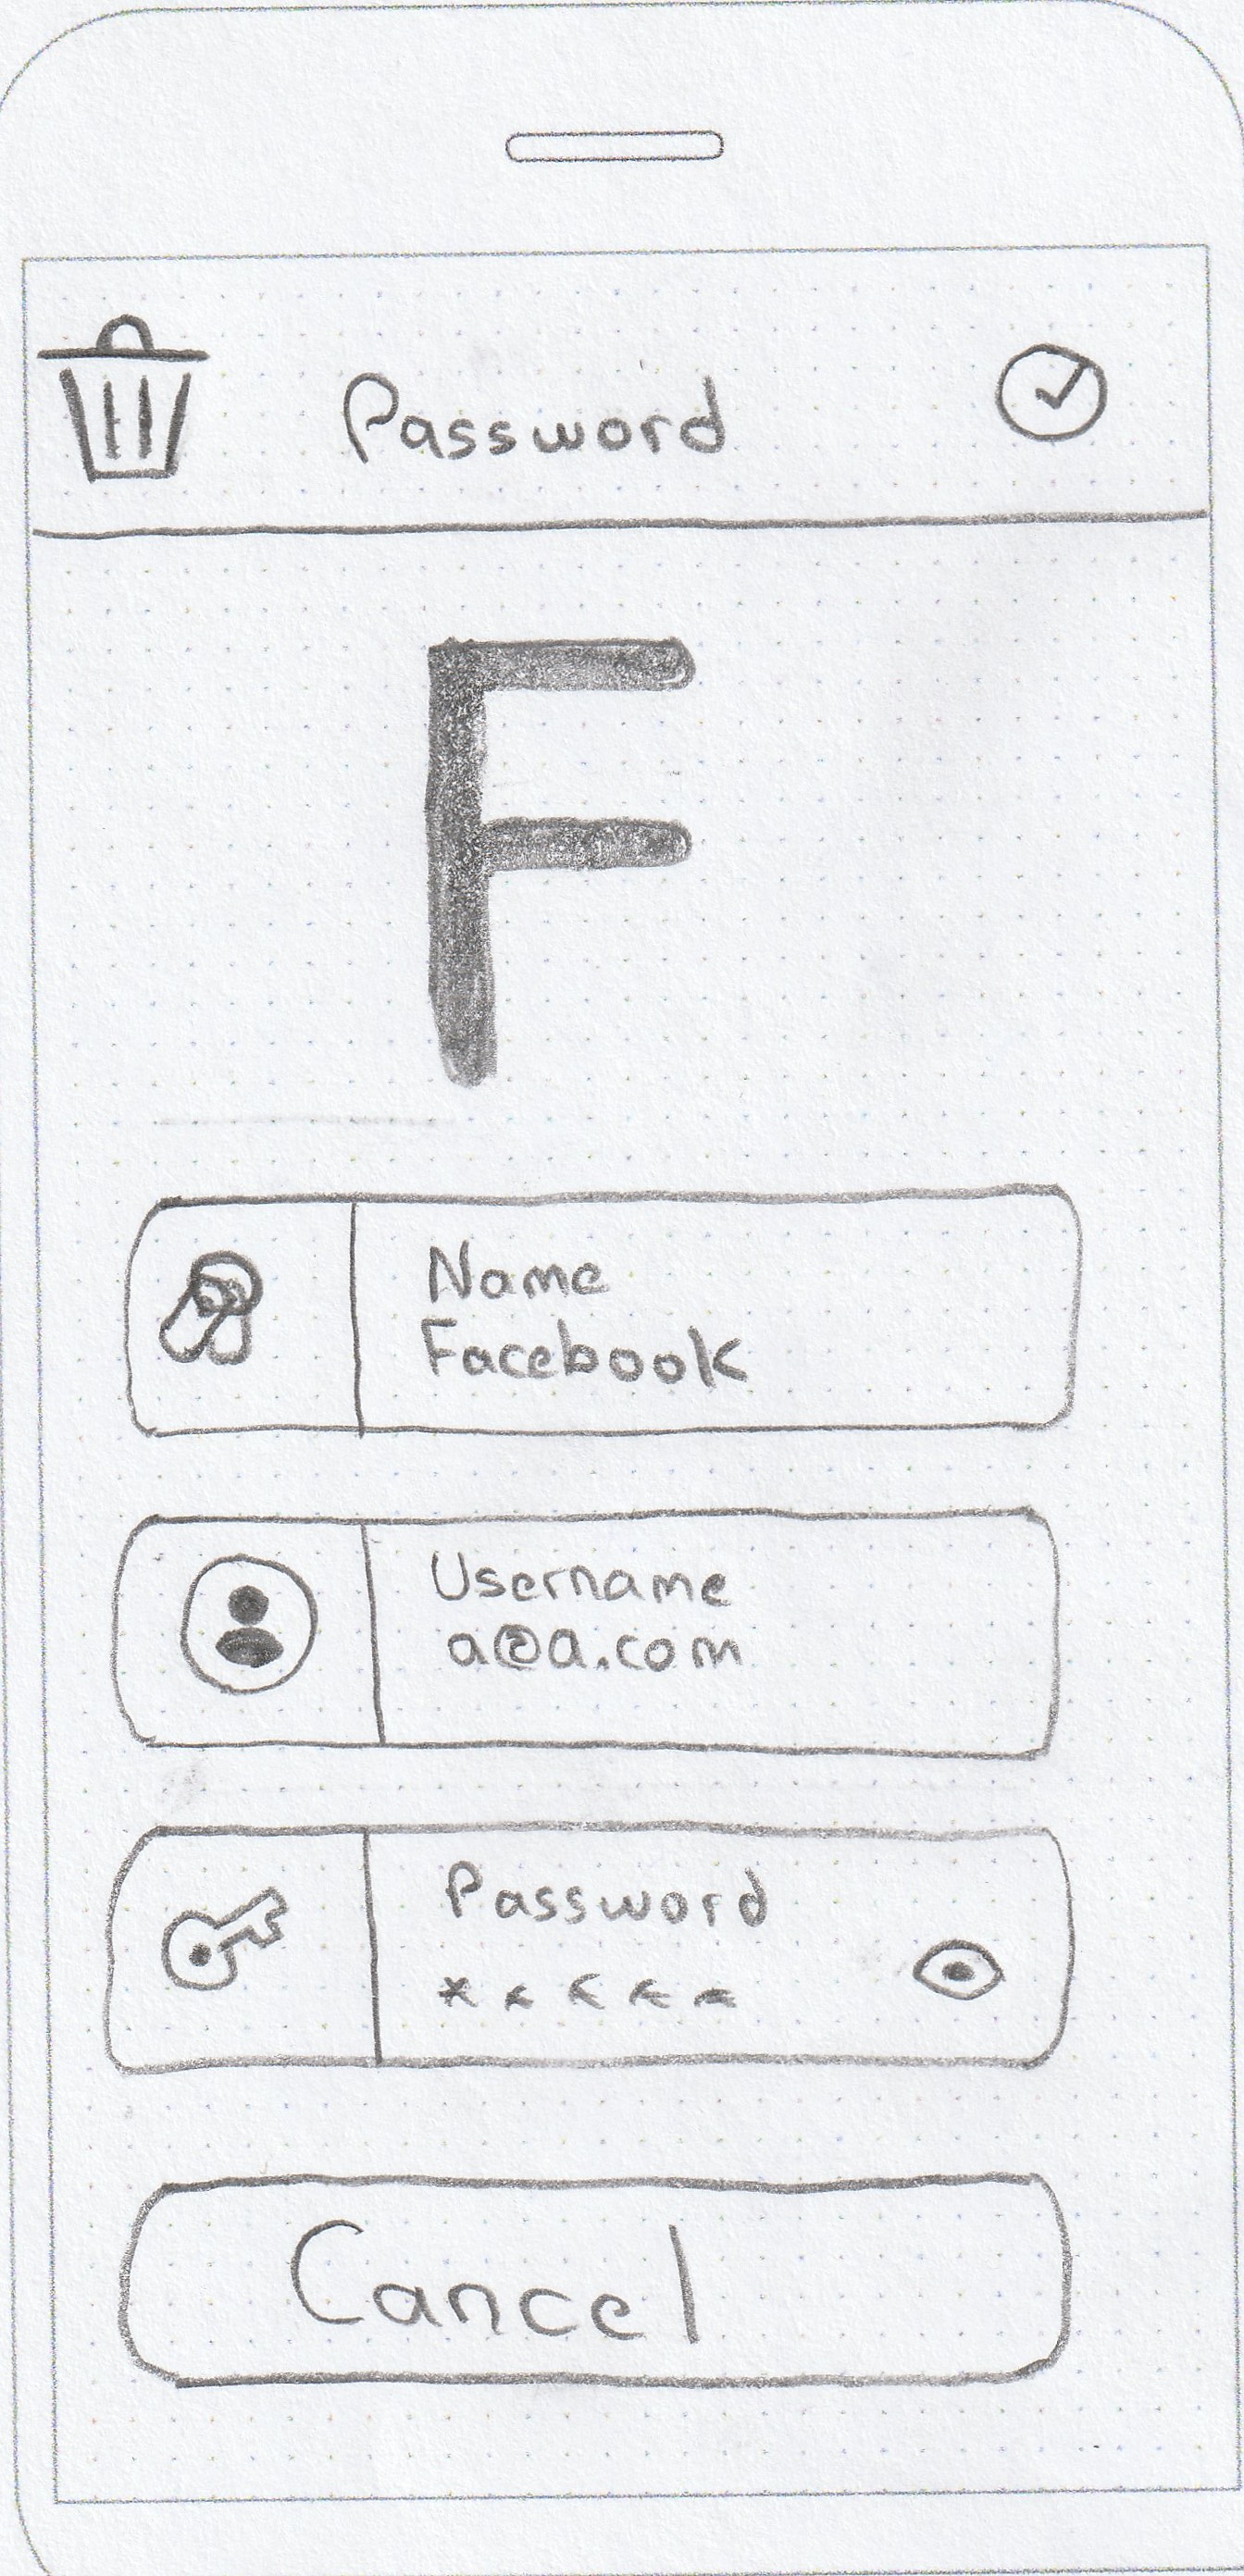 Password
F
Name
Facebook
Username
a@a.com
Password
*****
Cancel